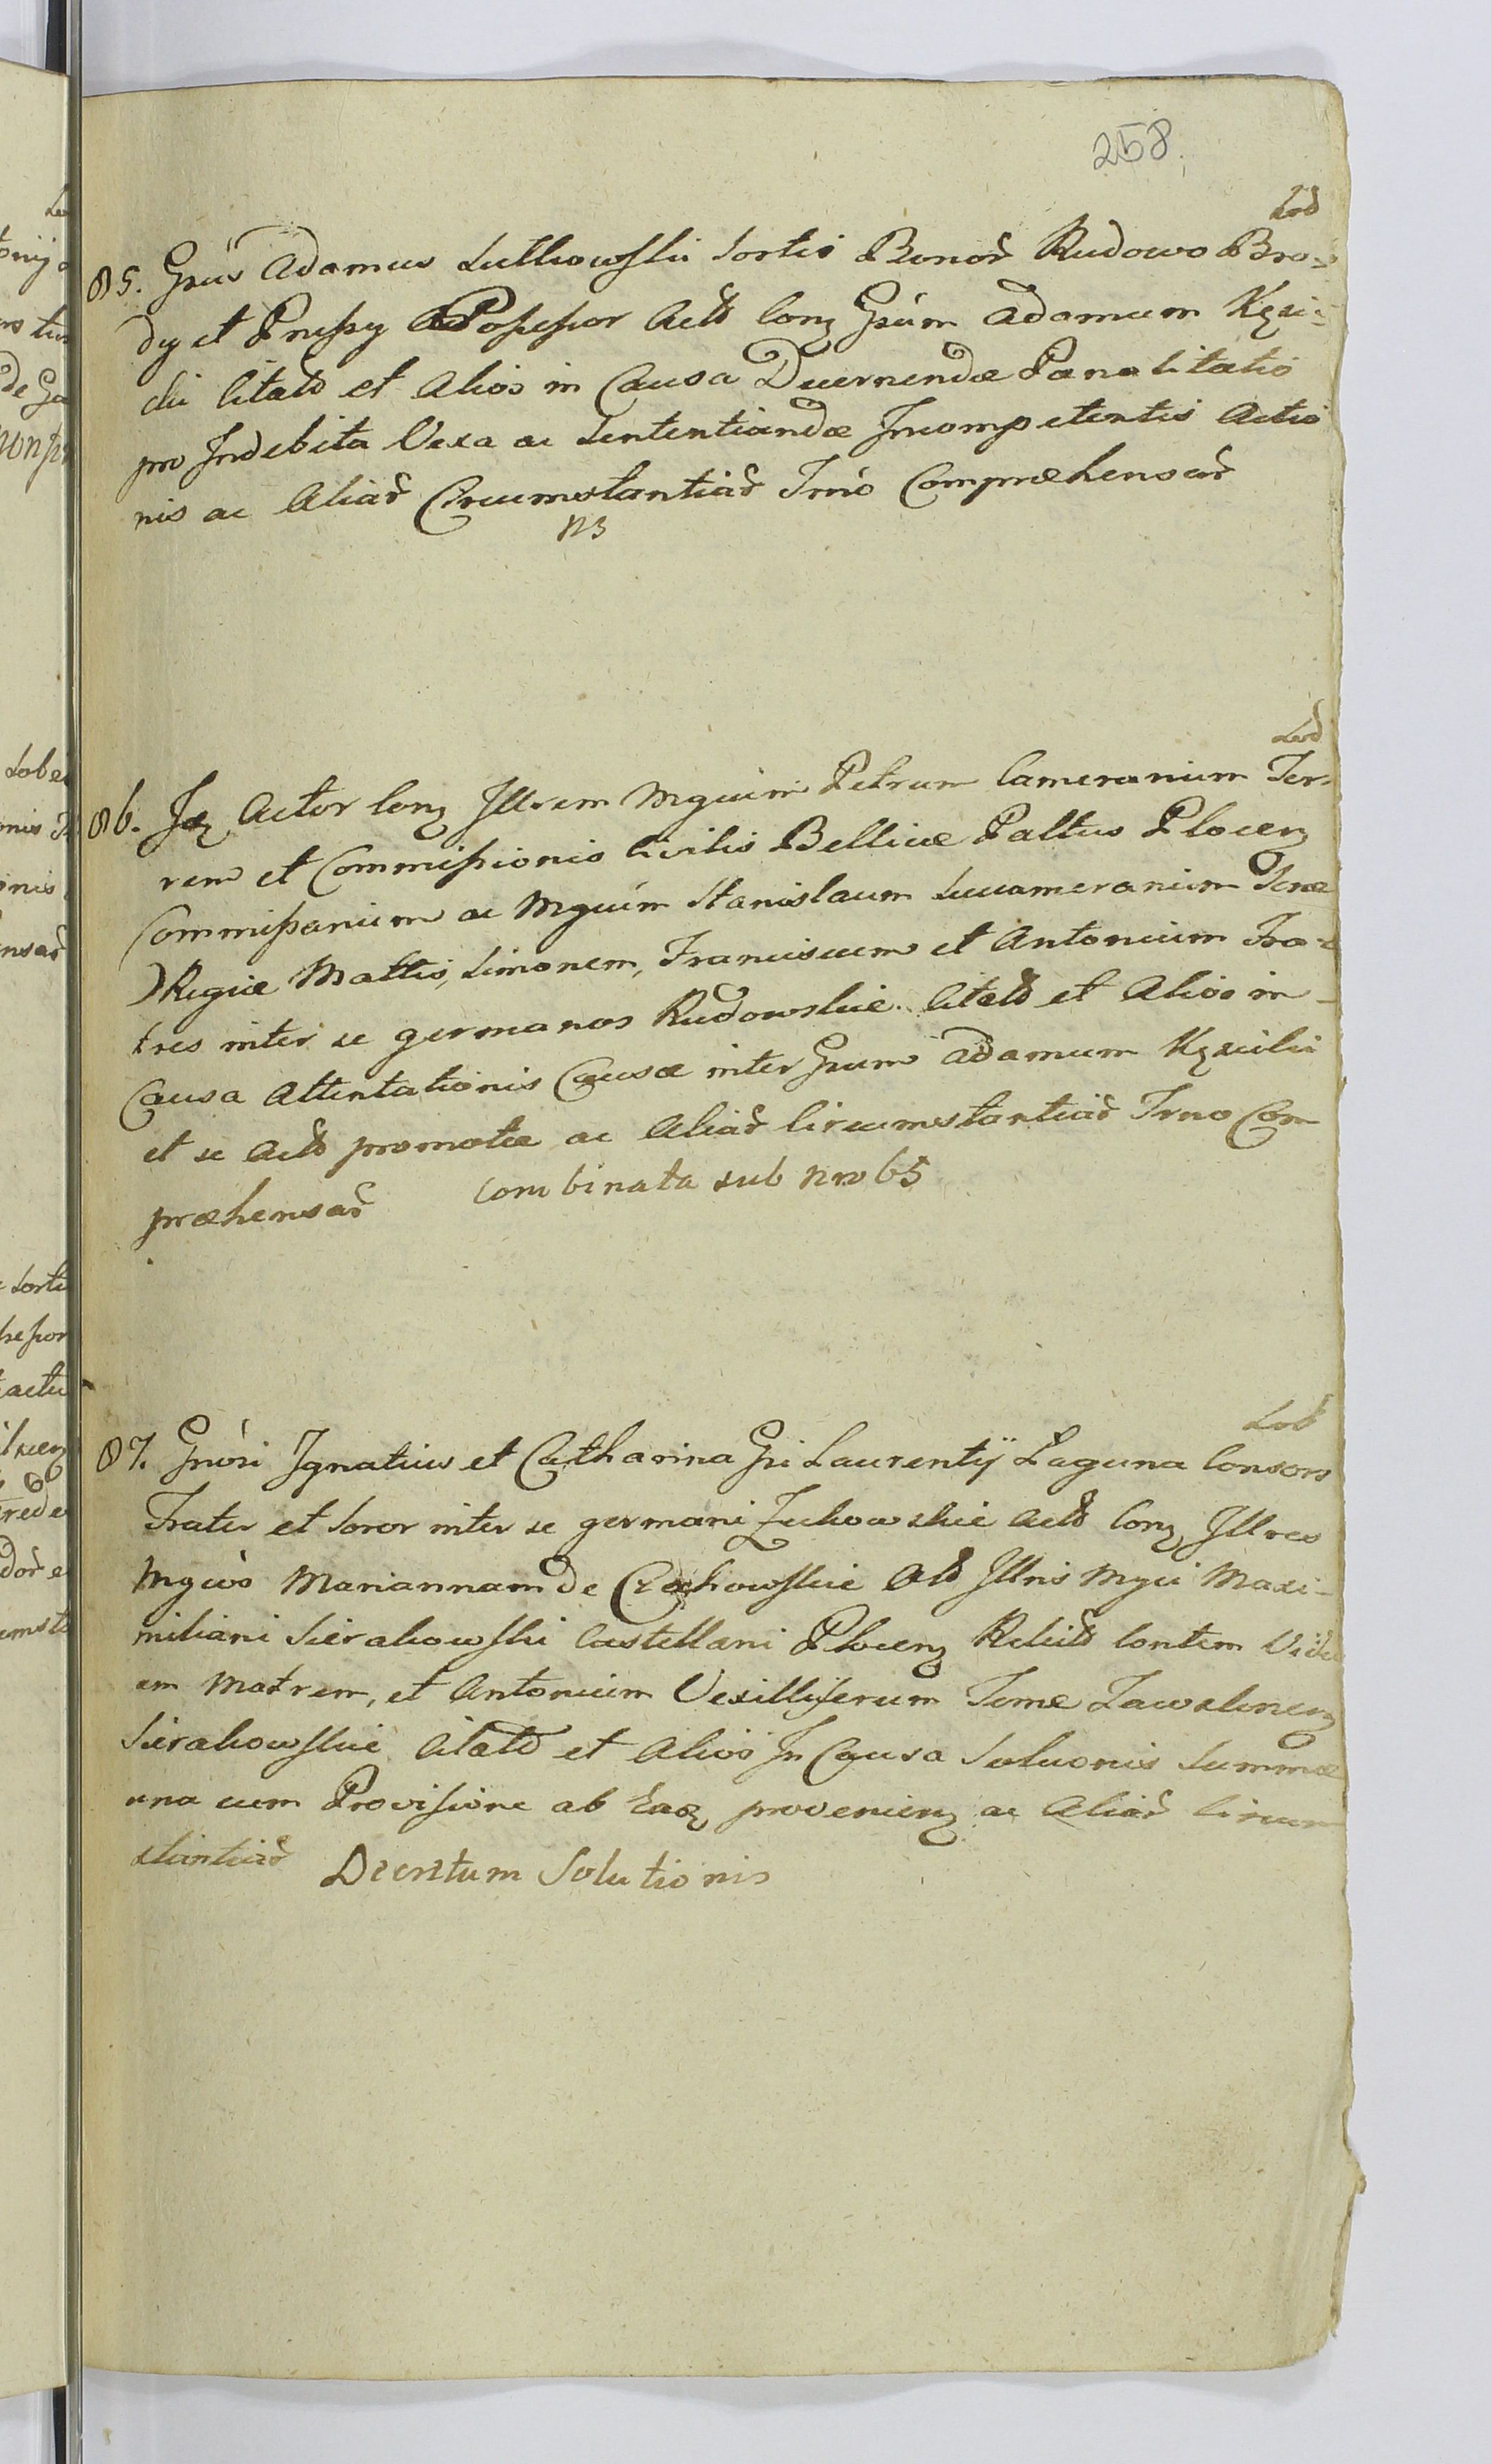 258.
85. Gnus Adamus Lutkowski Sortis Bonor Rudowo Bro=
dy et Prussy Possessor Actd Conz Gnum Adamum Kęsi=
cki Citatd et Alios in Causa Decernendæ Pœnalitatis
pro Indebita Vexa ac Sententiandæ Incompetentis Actio
nis ac Aliar Circumstantiar Trno Compræhensar
N3
86. Actor Conz Illrem Mgcum Petrum Camerarium Ter=
rem et Commissionis Civilis Bellicæ Pallus Plocenz
Commissarium ac Mgcum Stanislaum Succamerarium Scræ
Regiæ Mattis, Simonem, Franciscum et Antonium Fra=
tres inter se germanos Rudowskie Citatd et Alios in
Causa Attentationis Causæ inter Gnum Adamum Kęsicki
et se Actd promotæ ac Aliar Circumstantiar Trno Com
præhensar Combinata sub nro 65
87. Gnosi Ignatius et Catharina Gni Laurentÿ Łaguna Consors
Frater et Soror inter se germani Zukowskie Actd Conz Illres
Mgcos Mariannam de Czekowskie Old Illris Mgci Maxi=
miliani Sierakowski Castellani Plocenz Relictd Contem Vidu
am Matrem, et Antonium Vexilliferum Terræ Zawskrnenz
Sierakowskie Citatd et Alios In Causa Soluonis Summæ
una cum Provisione ab Eaq provenienz ac Aliar Circum
stantiar Decretum Solutionis